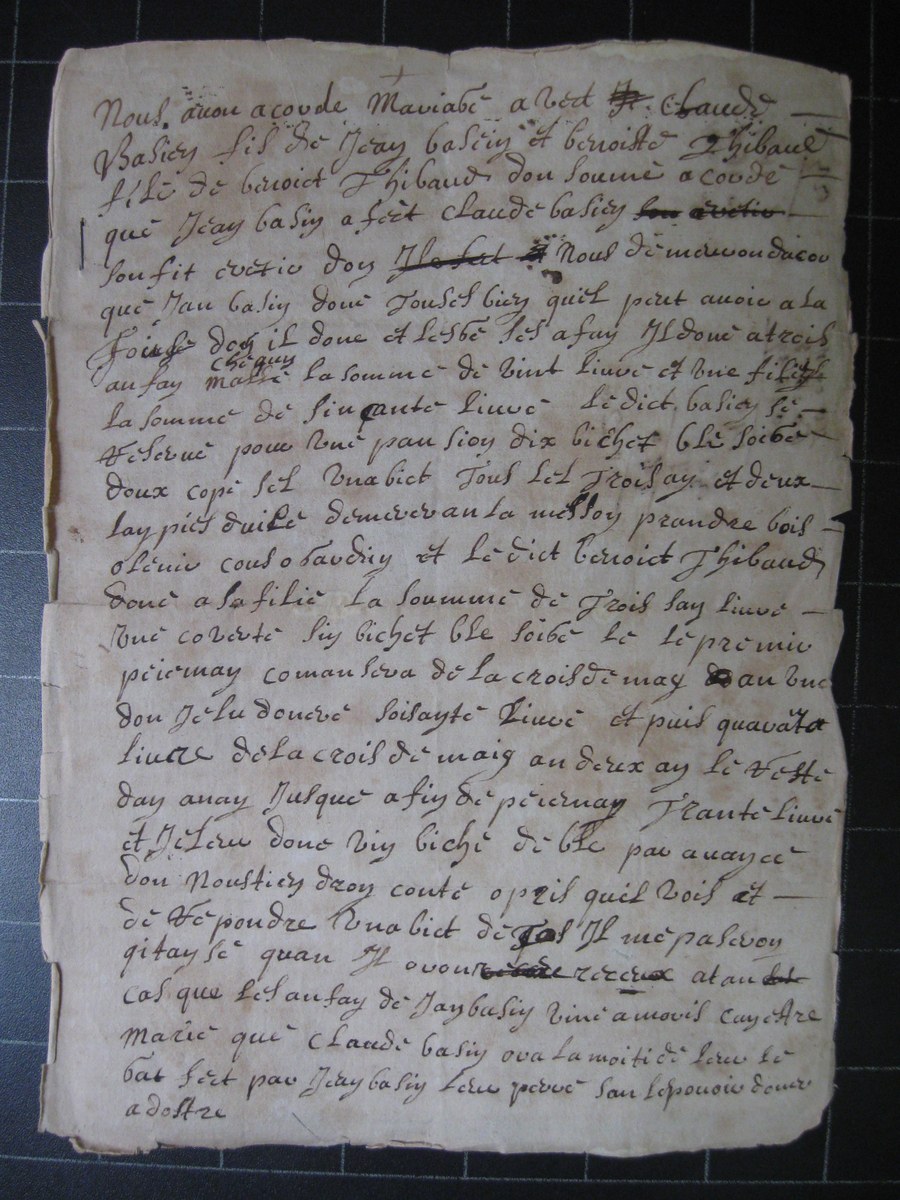 Nous avon acorde Mariage avect Claude
Basien fils de Jean basein et benoiste Thibaud
file de benoict Thibaud don soume acorde
que Jean basin a fect Claude basien
son fit eretie don Nous demeuron dacor
que Jan basin done Tousels bien quil peut avoir a la
don il done et lesse ses afan Il done a trois
anfan chequn la somme de vint livre et vne filie
la somme de sincante livre le dict basien se
reserve pour vne pansion dix bichet ble soige
doux cope sel vnabict Tous les Trois an et deux
la messon prandre bois
et le dict benoict Thibaud
done a sa filie la soumme de Trois san livre
vne coverte sin bichet ble soige le le premie
peiemay comansera de la crois de may an vne
don Je lu donere soisante livre et puis quarate
livre de la crois de maig an deux an le reste
dan anay Jusque a fin de peiemay Trante livre
et Je leu done vin biche de ble par avance
don Nous tien dron conte o pris quil vois et
de repondre vnabict de Il me paseron
quan Il oron receux atan
cas que les anfay de Jan basin vine a moris
Marie que Claude basin ora la moitie de leu le
gat fect par Jean basin leu pere san le povoir doner
a dostre